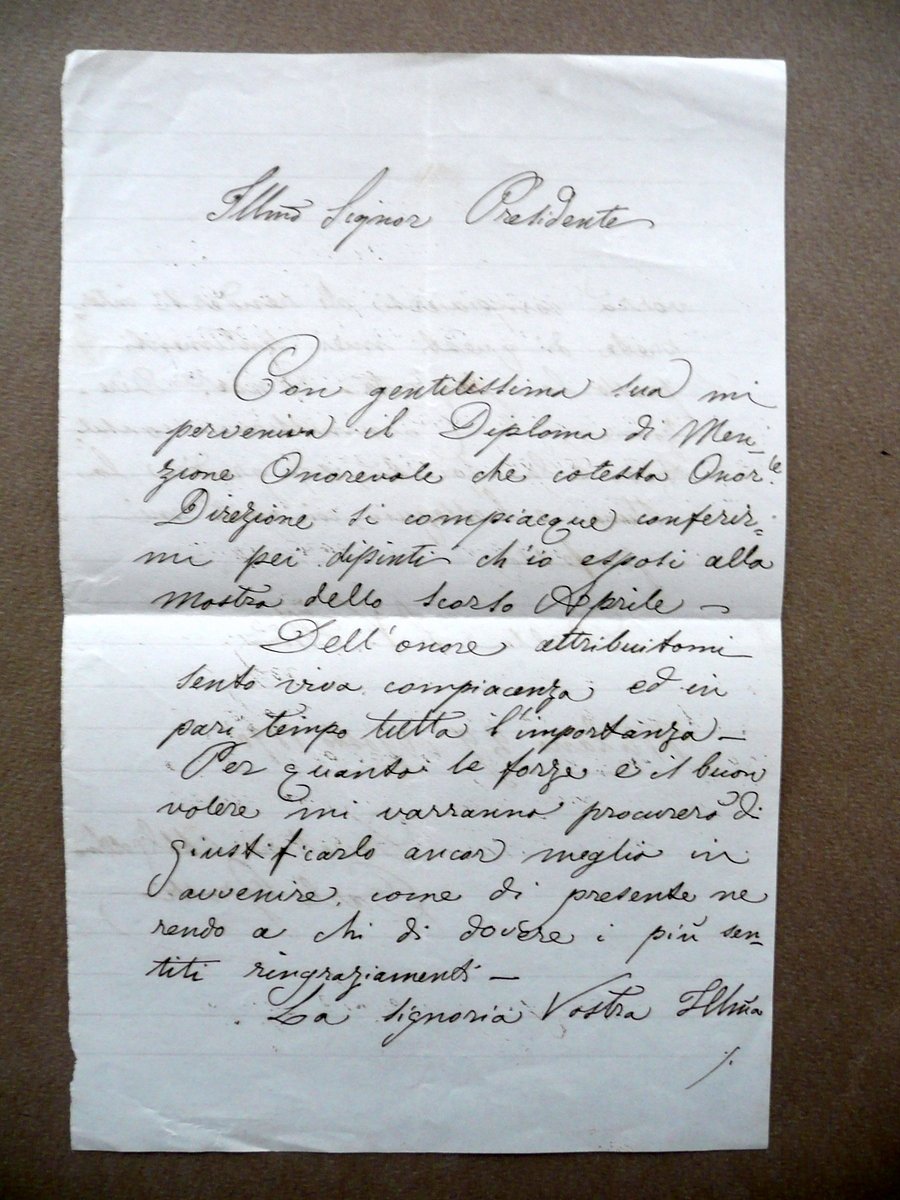 Illmo Signor Presidente
Con gentilissima sua mi
perveniva il Diploma di Men=
zione Onorevole che cotesta Onor.le
Direzione si compiacque conferir=
mi pei dipinti ch'io esposi alla
mostra dello scorso Aprile –
Dell'onore attribuitomi
sento viva compiacenza ed in
pari tempo tutta l'importanza –
Per quanto le forze e il buon
volere mi varranno procurerò di
giustificarlo ancor meglio in
avvenire, come di presente ne
rendo a chi di dovere i più sen=
titi ringraziamenti –
La Signoria Vostra Illma
./.